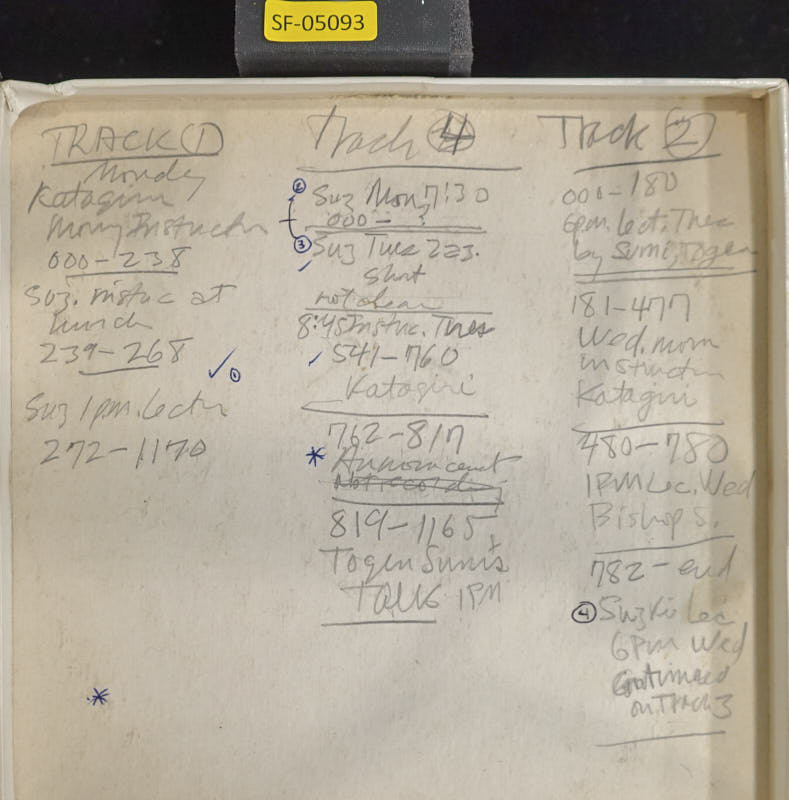 SF-05093
TRACK 1
Monday
Katagiri
Morn Instructn
000-238
Suz. instuc at
lunch
239-268
✓ 1
Suz 1 p.m. lectn
272-1170
*
Track 4
2 Suz Mon 7:30
000- ?
3 Suz Tues
short
not clear
8:45 Instruc. Tues
541-760
Katagiri
762-817
* Announcent
819-1165
Togen Sumi's
TALK 1PM
Track 2
000-180
6p.m. lect. Thes
by Sumi, Togen
181-477
Wed. morn
instructn
Katagiri
480-780
1PM Lec. Wed
Bishop S.
782-end
4 Suzki Lec
6PM Wed
Continued
on Track 3